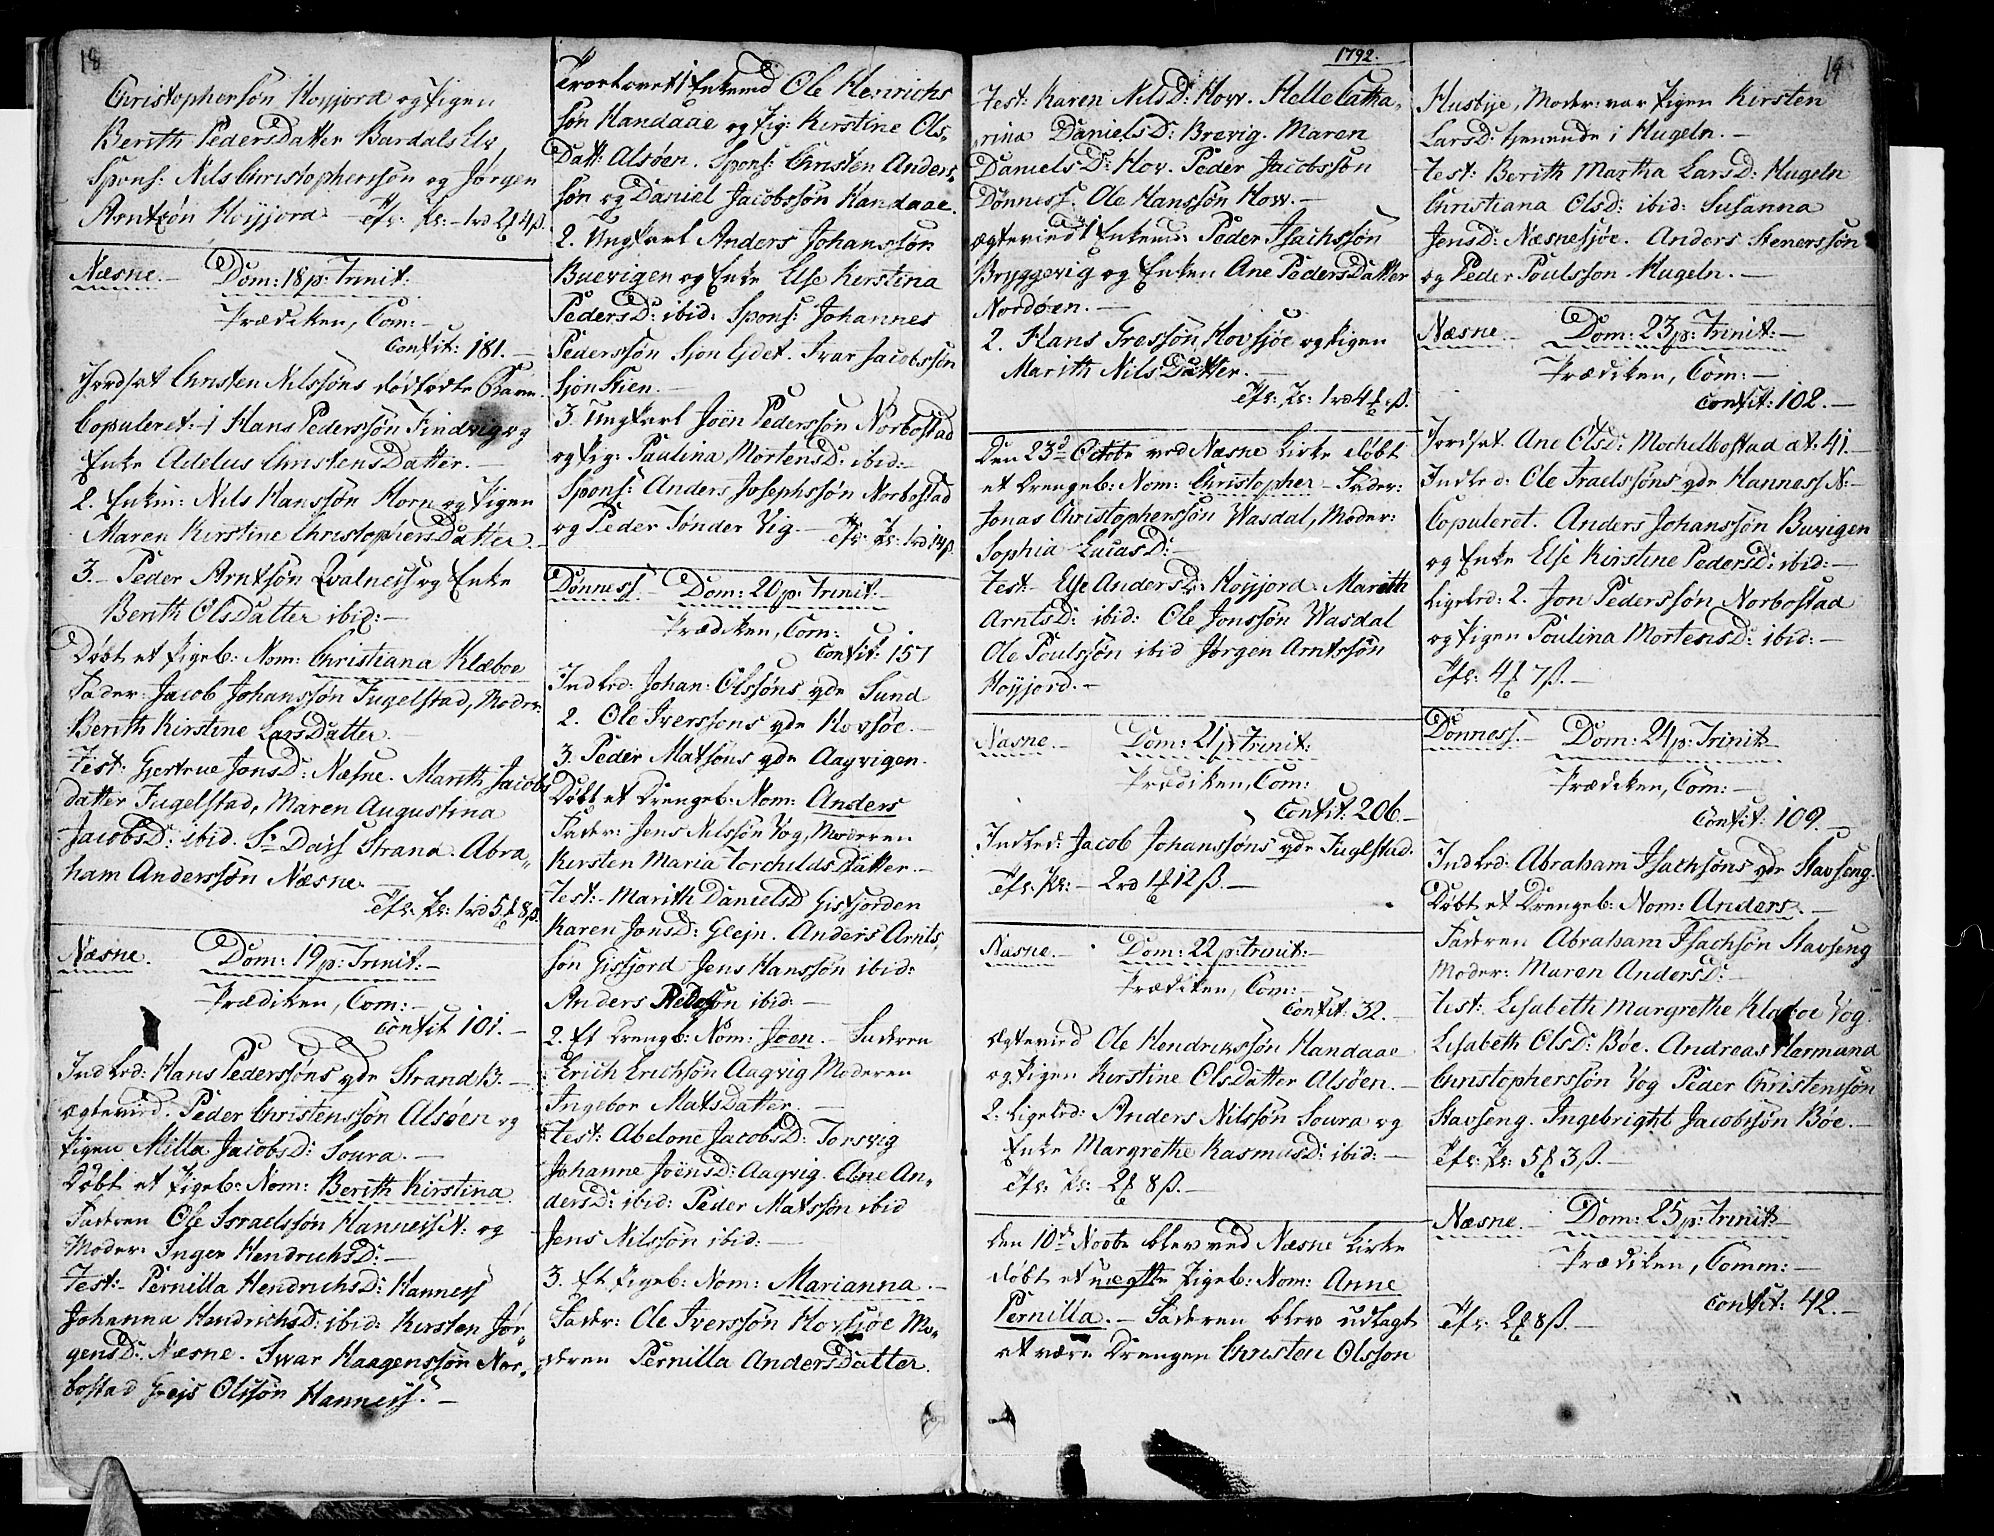 18
Christophersøn Høyjord og Pigen
Berith PedersDatter Bardals Elv,
Spons: Nils Christophersøn og Jørgen
Arntsøn Høyjord
Næsne. Dom: 18 p: Trinit:
Prædiken, Com:
Confit: 181.
Jordfæst Christen Nilssøns dødfødte Barn.
Copuleret: 1 Hans Pederssøn Findvig og
Enke Adelus ChristensDatter.
2. Enkm: Nils Hanssøn Horn og Pigen
Maren Kirstine ChristophersDatter.
3. Peder Arntsøn Qvalness og Enke
Berith OlsDatter ibid:
Døbt et Pigeb: Nom: Christiana Klæboe
Fader: Jacob Johanssøn Fugelstad, Moder
Berith Kirstine LarsDatter.
Test: Gjertrue JonsD: Næsne. Marith Jacobs
datter Fugelstad, Maren Augustina
JacobsD: ibid. Sr Dass Strand. Abra-
ham Anderssøn Næsne.
Næsne. Dom: 19 p: Trinit:
Prædiken, Com:
Confit 101.
Indled: Hans Pederssøns qde Strand B.
Ægtevied. Peder Christenssøn Alsøen og
Pigen Milla JacobsD: Soura.
Døbt et Pigeb: Nom: Berith Kirstina
Faderen Ole Israelssøn Hanness N: og
Moder: Inger HendrichsD:
Test: Pernilla HendrichsD: Hanness
Johanna HendrichsD: ibid: Kirsten Jør-
gensD: Næsne. Iwar Haagenssøn Nor-
bostad Greis Olssøn Hanness.
Trolovet 1 Enkemd Ole Henrichs
søn Handaae og Pig: Kirstine Ols-
Datt: Alsøen. Spons: Christen Anders-
søn og Daniel Jacobssøn Handaae.
2. Ungkarl Anders Johanssøn
Buevigen og Enke Else Kirstina
PedersD: ibid: Spons: Johannes
Pederssøn Sjon Eydet. Ivar Jacobssøn
Sjon Skien.
3. Ungkarl Joen Pederssøn Norbostad
og Pig: Paulina MortensD: ibid:
Spons: Anders Josephssøn Norbostad
og Peder Tønder Vig.
Dønness. Dom: 20 p: Trinit:
Prædiken, Com:
Confit: 157
Indled: Johan: Olssøns qde Sund
2. Ole Iverssons qde Hovsøe.
3. Peder Matsøns qde Aagvigen.
Døbt et Drengeb: Nom: Anders
Fader: Jens Nilssøn Vog, Moderen
Kirsten Maria TorchildsDatter.
Test: Marith DanielsD Gisfjorden
Karen JonsD: Glejn. Anders Arnts-
søn Gisfjord Jens Hanssøn ibid:
Anders Pedersøn ibid:
2. Et Drengb: Nom: Joen. Faderen
Erich Erichsøn Aagvig Moderen
Ingebor MatsDatter.
Test: Abelone JacobsD: Torsvig
Johanne JoensD: Aagvig. Ane An-
dersD: ibid: Peder Matssøn ibid
Jens Nilssøn ibid:
3. Et Pigeb: Nom: Marianna.
Fader: Ole Iverssøn Hovsjøe Mo-
deren Pernilla AndersDatter.
1792.
Test: Karen NilsD: How. Helle Catha-
rina DanielsD: Brevig. Maren
DanielsD: How. Peder Jacobssøn
Dønness. Ole Hanssøn How.
Ægtevied 1 Enkemd: Peder Isachssøn
Bryggevig og Enken Ane PedersDatter
Nordøen.
2. Hans Gressøn Hovsjøe og Pigen
Marith NilsDatter.
Den 23d Octobr ved Næsne Kirke døbt
et Drengeb: Nom: Christopher Fader:
Jonas Christopherssøn Wasdal, Moder:
Sophia LucasD:
Test: Else AndersD: Høyjord. Marith
ArntsD: ibid: Ole Jonssøn Wasdal
Ole Poulssøn ibid Jørgen Arntssøn
Høyjord.
Næsne. Dom: 21 p: Trinit:
Prædiken, Com:
Confit: 206.
Indled: Jacob Johanssøns qde Fuglstad.
Næsne. Dom: 22 p: Trinit:
Prædiken, Com:
Confit: 32.
Ægtevied Ole Hendrikssøn Handaae
og Pigen Kirstine OlsDatter Alsøen.
2. Ligeled: Anders Nilssøn Soura og
Enke Margrethe RasmusD: ibid:
Den 10d Novbr blev ved Næsne Kirke
døbt et uægte Pigeb: Nom: Anne
Pernilla. Faderen blev udlagt
at være Drengen Christen Olsson
14
Husbye, Moder: var Pigen Kirsten
LarsD: tjenende i Hugeln.
Test: Berith Martha LarsD: Hugeln
Christiana OlsD: ibid: Susanna
JensD: Næsnesjøe. Anders Stenerssøn
og Peder Poulsson Hugeln.
Næsne Dom: 23 p: Trinit:
Prædiken, Com:
Confit: 102.
Jordfæst Ane OlsD: Mochelbostad æt: 41.
Indled: Ole Iraelssøns qde Hanness N:
Copuleret. Anders Johanssøn Buvigen
og Enke Else Kirstine PedersD: ibid:
Ligeled: 2. Jon Pederssøn Norbostad
og Pigen Poulina MortensD: ibid:
Dønness. Dom: 24 p: Trinit:
Prædiken, Com:
Confit: 109.
Indled: Abraham Isachsøns qde Stavseng.
Døbt et Drengeb: Nom: Anders.
Faderen Abraham Isachsøn Stavseng
Moder: Maren AndersD:
Test: Lisabeth Margrethe Klæboe Vog.
Lisabeth OlsD: Bøe. Andreas Harmund
Christopherssøn Vog Peder Christenssøn
Stavseng. Ingebright Jacobssøn Bøe.
Næsne. Dom: 25 p: Trinit:
Prædiken, Comm:
Confit: 42.